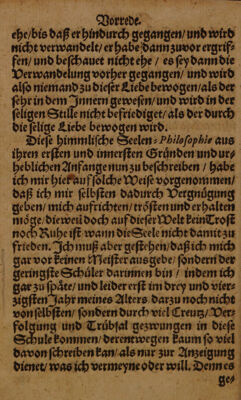 Vorrede.
ehe/ bis daß er hindurch gegangen/ und wird
nicht verwandelt/ er habe dann zuvor ergrif-
fen/ und beschauet nicht ehe/ es sey dann die
Verwandelung vorher gegangen/ und wird
also niemand zu dieser Liebe bewogen/ als der
sehr in dem Innern gewesen/ und wird in der
seligen Stille nicht befriediget/ als der durch
die selige Liebe bewogen wird.
Diese himmlische Seelen-Philosophie aus
ihren ersten und innersten Gründen und ur-
heblichen Anfange nun zu beschreiben/ habe
ich mir hie auf solche Weise vorgenommen/
daß ich mir selbsten dadurch Vergnügung
geben/ mich aufrichten/ trösten und erhalten
möge/ dieweil doch auf dieser Welt kein Trost
noch Ruhe ist wann die Seele nicht damit zu
frieden. Ich muß aber gestehen/ daß ich mich
gar vor keinen Meister ausgebe/ sondern der
geringste Schüler darinnen bin/ indem ich
gar zu späte/ und leider erst in drey und vier-
zigsten Jahr meines Alters darzu noch nicht
von selbsten/ sondern durch viel Creutz/ Ver-
folgung und Trübsal gezwungen in diese
Schule kommen/ derentwegen kaum so viel
davon schreiben kan/ als nur zur Anzeigung
dienet/ was ich vermeyne oder will. Denn es
ge-